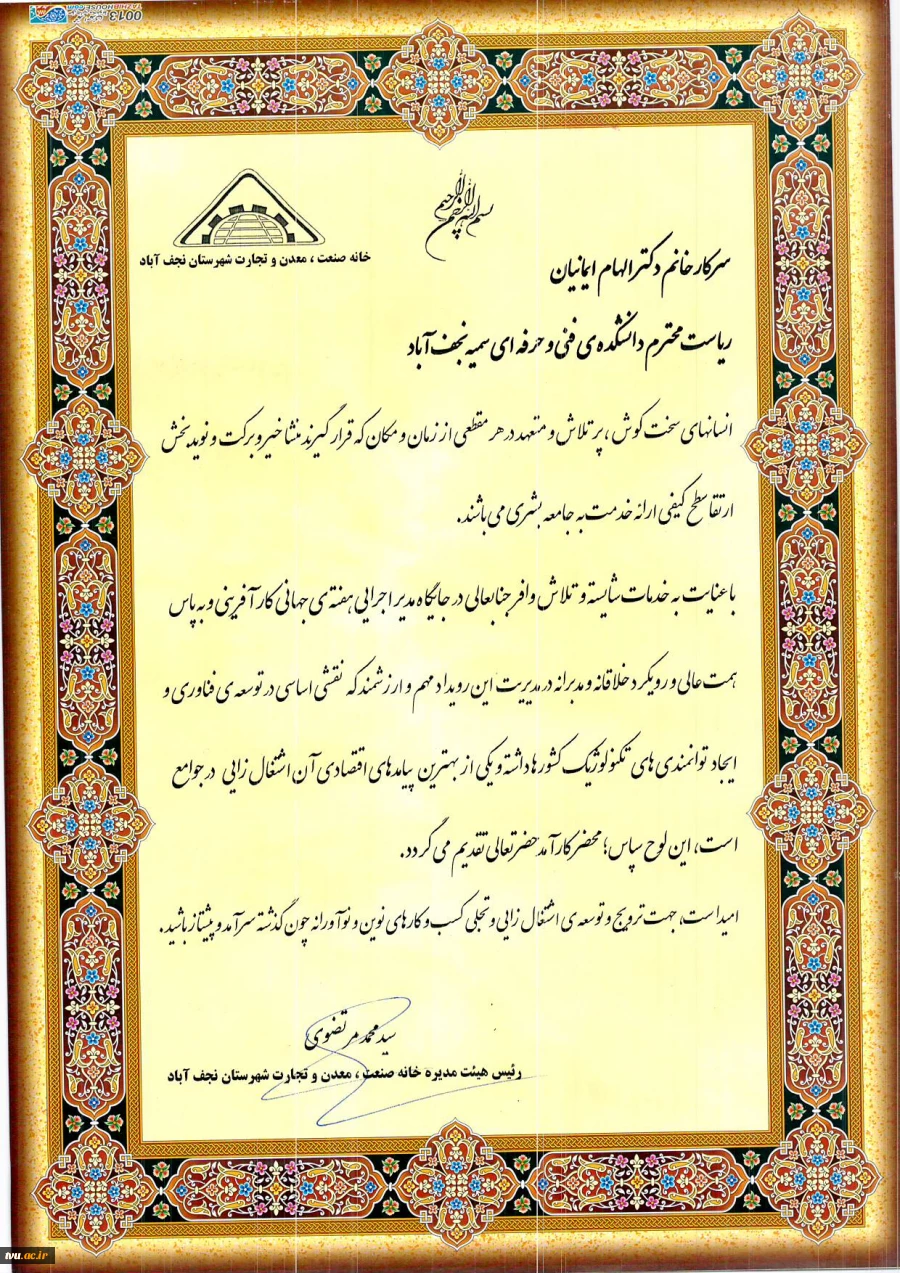 بسم الله الرحمن الرحیم
خانه صنعت ، معدن و تجارت شهرستان نجف آباد
سرکار خانم دکتر الهام ایمانیان
ریاست محترم دانشکده ی فنی و حرفه ای سمیه نجف آباد
انسانهای سخت کوش ، پر تلاش و متعهد در هر مقطعی از زمان و مکان که قرار گیرند منشا خیر و برکت و نوید بخش
ارتقا سطح کیفی ارائه خدمت به جامعه بشری می باشند.
با عنایت به خدمات شایسته و تلاش وافر جنابعالی در جایگاه مدیر اجرایی هفته ی جهانی کارآفرینی و به پاس
همت عالی و رویکرد خلاقانه و مدبرانه در مدیریت این رویداد مهم و ارزشمند که نقشی اساسی در توسعه ی فناوری و
ایجاد توانمندی های تکنولوژیک کشورها داشته و یکی از بهترین پیامدهای اقتصادی آن اشتغال زایی در جوامع
است، این لوح سپاس؛ محضر کارآمد حضرتعالی تقدیم می گردد.
امید است، جهت ترویج و توسعه ی اشتغال زایی و تجلی کسب و کارهای نوین و نوآورانه چون گذشته سرآمد و پیشتاز باشید.
سید محمد مرتضوی
رئیس هیئت مدیره خانه صنعت ، معدن و تجارت شهرستان نجف آباد
tvu.ac.ir
0013
TAZHIBHOUSE.COM